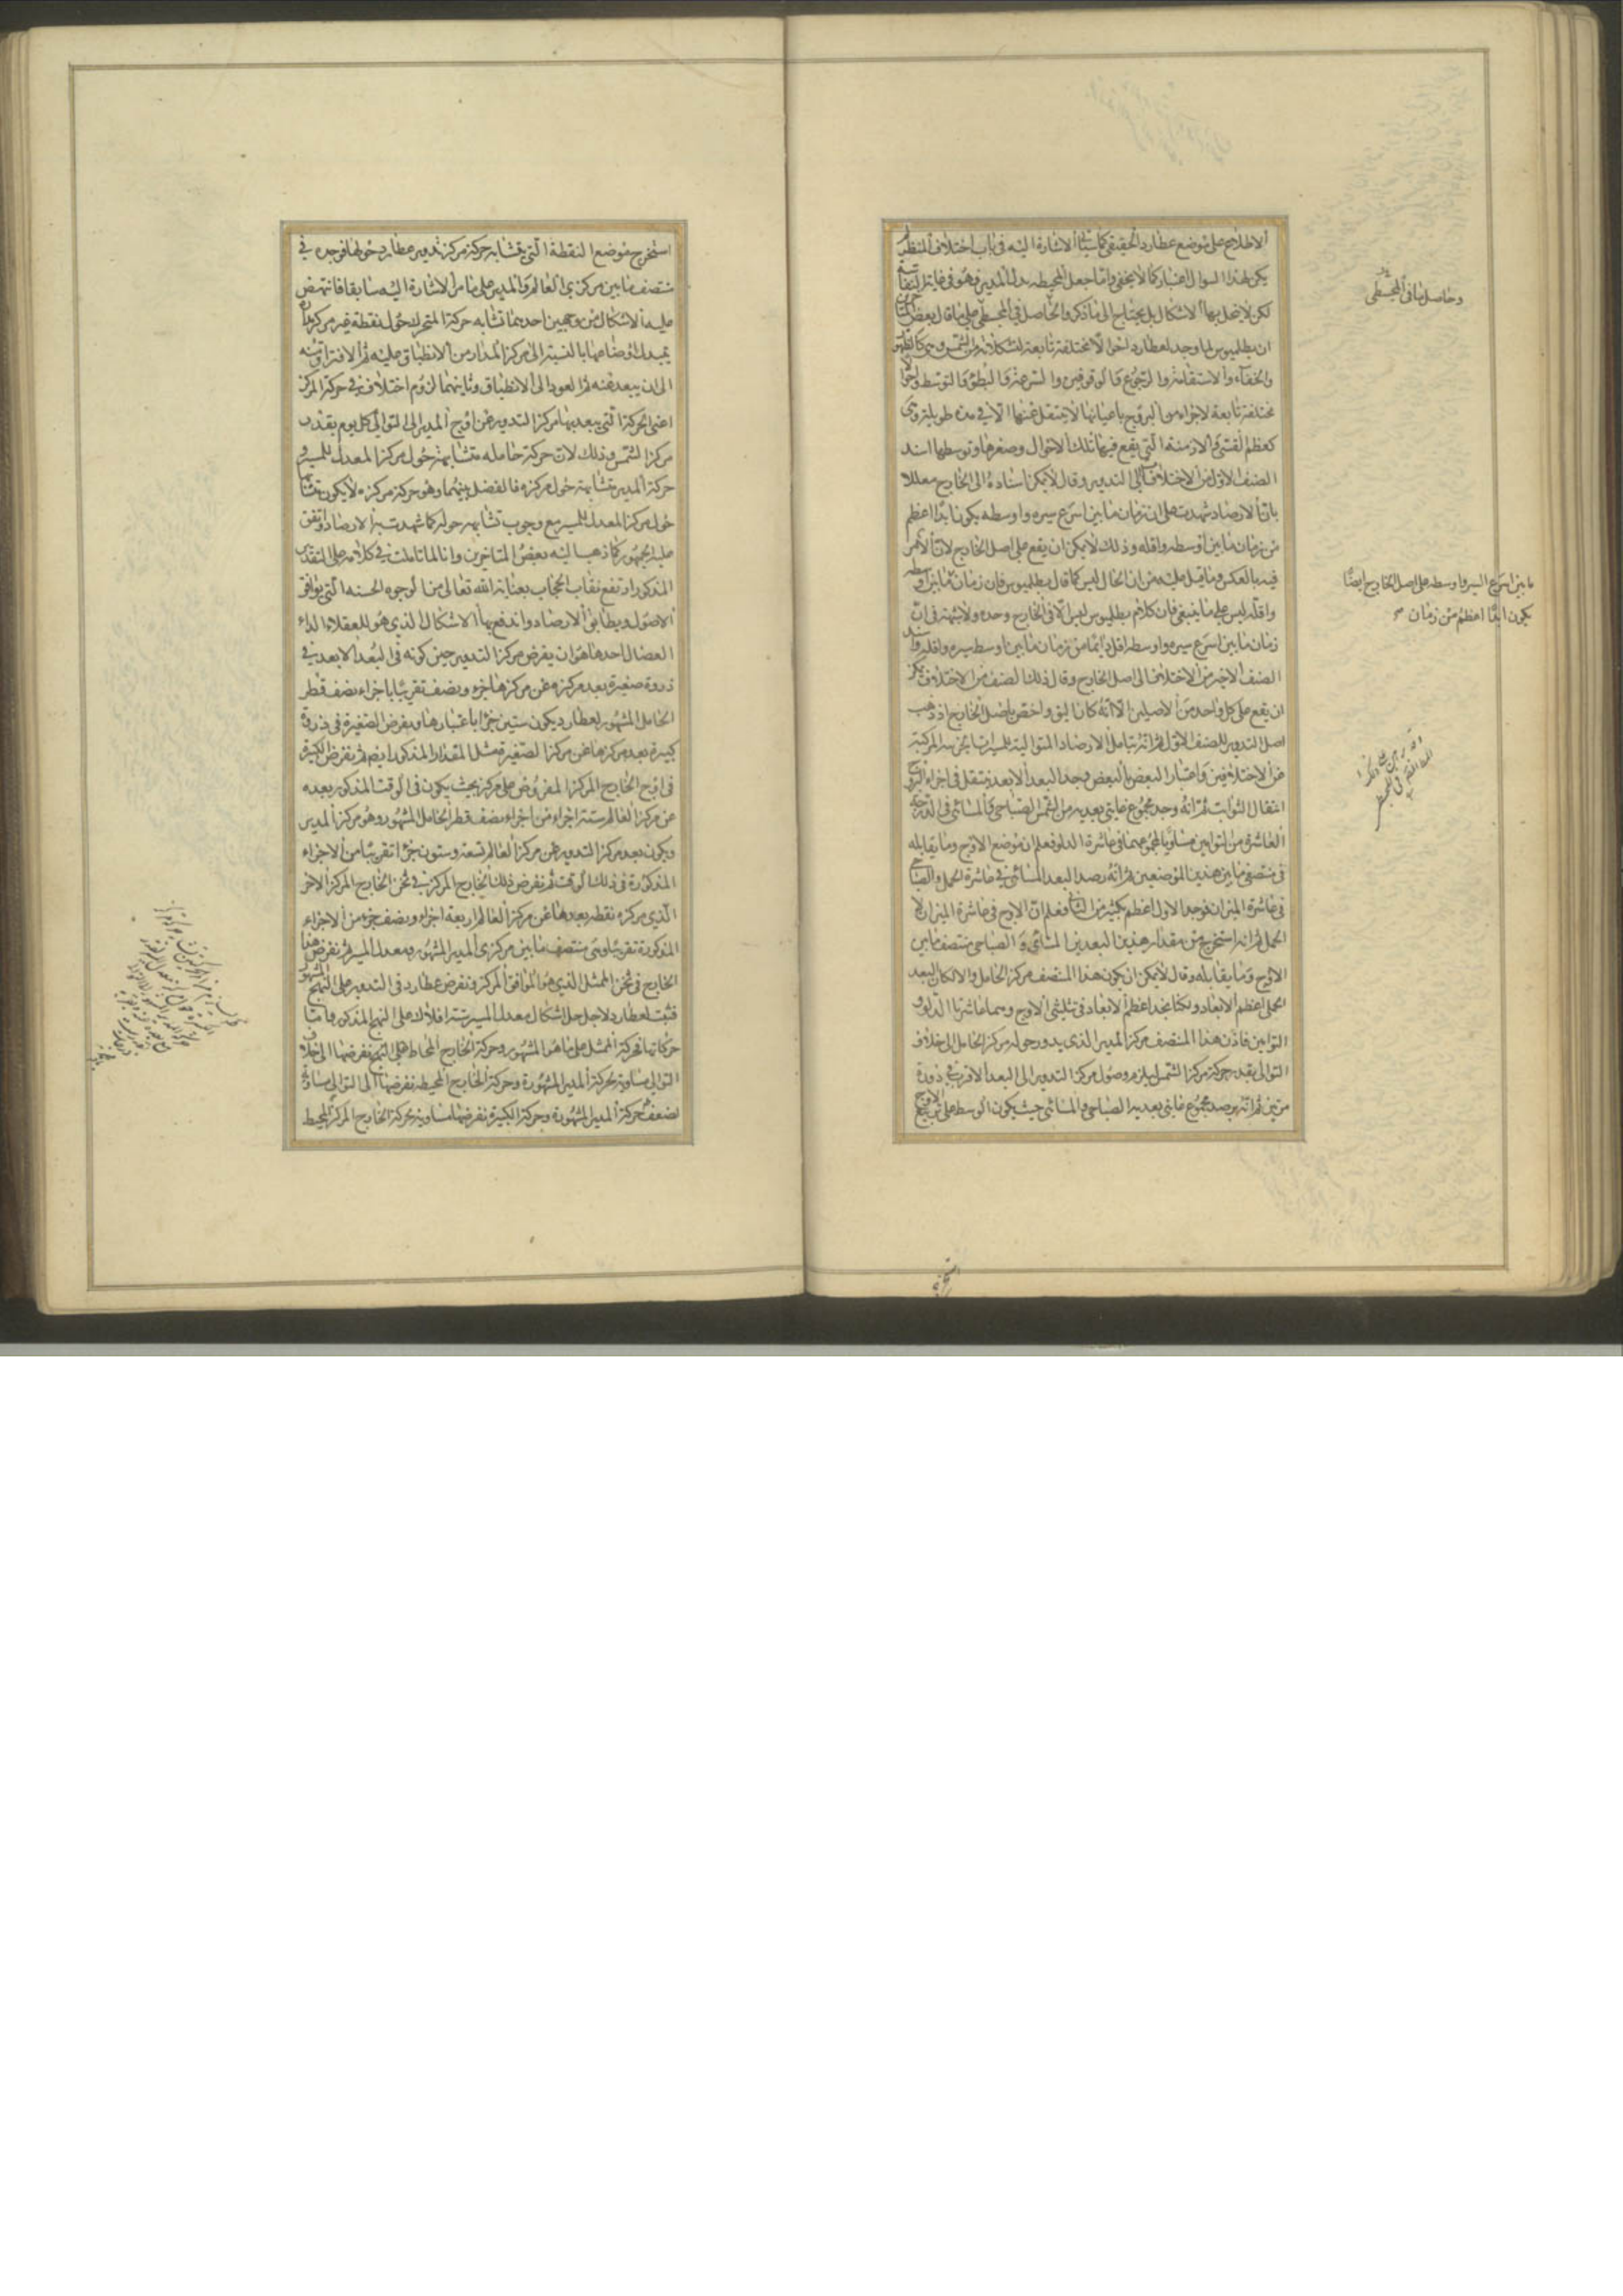 الاطلاع على موضع عطارد الحقيقي كما سيأتي الاشارة اليه في باب اختلاف المنظر لم
يكن لهذا السؤال اعتبار كما لا يخفى واما جعل المحيطه بدل المدير وهو في غاية
لكن لا ينحل بها الاشكال بل يحتاج الى ما ذكر والحاصل في المجسطي على ما قال بعض
ان بطليموس لما وجد لعطارد احوالا مختلفة تابعة لتشكلاته من الشمس وهي كالظهور
والخفاء والاستقامة والرجوع والوقوفين والسرعة والبطؤ والتوسط واحوالا
مختلفة تابعة لاجزاء من البروج باعيانها لا ينتقل عنها الا في مدة طويلة وهي
كعظم القسي والازمنة التي يقع فيها تلك الاحوال وصغرها وتوسطها اسند
الصنف الاول من الاختلاف الى التدوير وقال لا يمكن اسناده الى الخارج معللا
بان الارصاد شهدت على ان زمان ما بين اسرع سيره واوسطه يكون ابدا اعظم
من زمان ما بين اوسطه واقله وذلك لا يمكن ان يقع على اصل الخارج لان الامر
فيه بالعكس وما قيل عليه من ان الحال ليس كما قال بطليموس فان زمان ما بين اوسطه
واقله ليس على ما ينبغي فان كلام بطليموس ليس الا في الخارج وحده ولا شبهة في ان
زمان ما بين اسرع سيره واوسطه اقل دايما من زمان ما بين اوسط سيره واقله واسند
الصنف الاخير من الاختلاف الى اصل الخارج وقال ذلك الصنف من الاختلاف يمكن
ان يقع على كل واحد من الاصلين الا انه كان اليق واخص باصل الخارج اذ ذهب
اصل التدوير للصنف الاول ثم انه بتامل الارصاد المتوالية للمسيرات الجزئية المركبة
من الاختلافين واعتبار البعض بالبعض وجد البعد الابعد ينتقل في اجزاء البروج
انتقال الثوابت ثم انه وجد مجموع غايتي بعديه من الشمس الصباحي والمسائي في الدرجة
العاشرة من التوامين مساويا لمجموعهما في عاشرة الدلو فعلم ان موضع الاوج وما يقابله
في منتصفي ما بين هذين الموضعين ثم انه رصد البعد المسائي في عاشرة الحمل والصباحي
في عاشرة الميزان فوجد الاول اعظم بكثير من الثاني فعلم ان الاوج في عاشرة الميزان لا
الحمل ثم انه استخرج من مقدار هذين البعدين المسائي والصباحي منتصف ما بين
الاوج وما يقابله وقال لا يمكن ان يكون هذا المنتصف مركز الحامل والا لكان البعد
الحملي اعظم الابعاد ولكنا نجد اعظم الابعاد في تثليثي الاوج وهما عاشرتا الدلو و
التوامين فاذن هذا المنتصف مركز المدير الذي يدور حوله مركز الحامل الى خلاف
التوالي بقدر حركة مركز الشمس ليلزم وصول مركز التدوير الى البعد الاقرب في دورة
مرتين ثم انه رصد مجموع غايتي بعديه الصباحي والمسائي حيث يكون الوسط على تربيع الاوج
وحاصل ما في المجسطي
ما بين اسرع السير واوسطه على اصل الخارج ايضا
يكون ابدا اعظم من زمان
استخرج موضع النقطة التي يتشابه حركة مركز تدوير عطارد حولها فوجده في
منتصف ما بين مركزي العالم والمدير على ما مر الاشارة اليه سابقا فانتهض
عليه الاشكال من وجهين احدهما تشابه حركة المتحرك حول نقطة غير مركز مداره
يتبدل اوضاعها بالنسبة الى مركز المدار من الانطباق عليه ثم الافتراق منه
الى ان يبعد عنه ثم العود الى الانطباق وثانيهما لزوم اختلاف في حركة المركز
اعني الحركة التي يبعد بها مركز التدوير عن اوج المدير الى التوالي كل يوم بقدر
مركز الشمس وذلك لان حركة حامله متشابهة حول مركز المعدل للمسير و
حركة المدير متشابهة حول مركزه فالفضل بينهما وهو حركة مركزه لا يكون متشابها
حول مركز المعدل للمسير مع وجوب تشابهه حوله كما شهدت به الارصاد واتفق
عليه الجمهور كما ذهب اليه بعض المتاخرين وانا لما تاملت في كلامه على التقدير
المذكور ارتفع نقاب الحجاب بعناية الله تعالى من الوجوه الحسنه التي توافق
الاصول ويطابق الارصاد واندفع بها الاشكال الذي هو للعقلا الداء
العضال احدها هو ان يفرض مركز التدوير حين كونه في البعد الابعد في
ذروة صغيرة بعد مركزه عن مركزها جزء ونصف تقريبا باجزاء نصف قطر
الحامل المشهور لعطارد يكون ستين جزءا باعتبارها ويفرض الصغيرة في ذروة
كبيرة بعد مركزها عن مركز الصغيرة مثل المقدار المذكور ايضا ثم نفرض الكبيرة
في اوج الخارج المركز المفروض على مركز بحيث يكون في الوقت المذكور بعده
عن مركز العالم ستة اجزاء من اجزاء نصف قطر الحامل المشهور وهو مركز المدير
ويكون بعد مركز التدوير عن مركز العالم تسعة وستون جزءا تقريبا من الاجزاء
المذكورة في ذلك الوقت ثم نفرض ذلك الخارج المركز في ثخن الخارج المركز الاخر
الذي مركزه نقطه بعدها عن مركز العالم اربعة اجزاء ونصف جزء من الاجزاء
المذكورة تقريبا وهي منتصف ما بين مركزي المدير المشهور ومعدل المسير ثم نفرض هذا
الخارج في ثخن الممثل الذي هو الموافق المركز ونفرض عطارد في التدوير على النهج المشهور
فثبت لعطارد لاجل حل اشكال معدل المسير ستة افلاك على النهج المذكور واما
حركاتها فحركة الممثل على ما هو المشهور وحركة الخارج المحاط على النهج نفرضها الى خلاف
التوالي مساوية لحركة المدير المشهورة وحركة الخارج المحيطه نفرضها الى التوالي مساوية
لضعف حركة المدير المشهورة وحركة الكبيرة نفرضها مساوية لحركة الخارج المركز المحيط